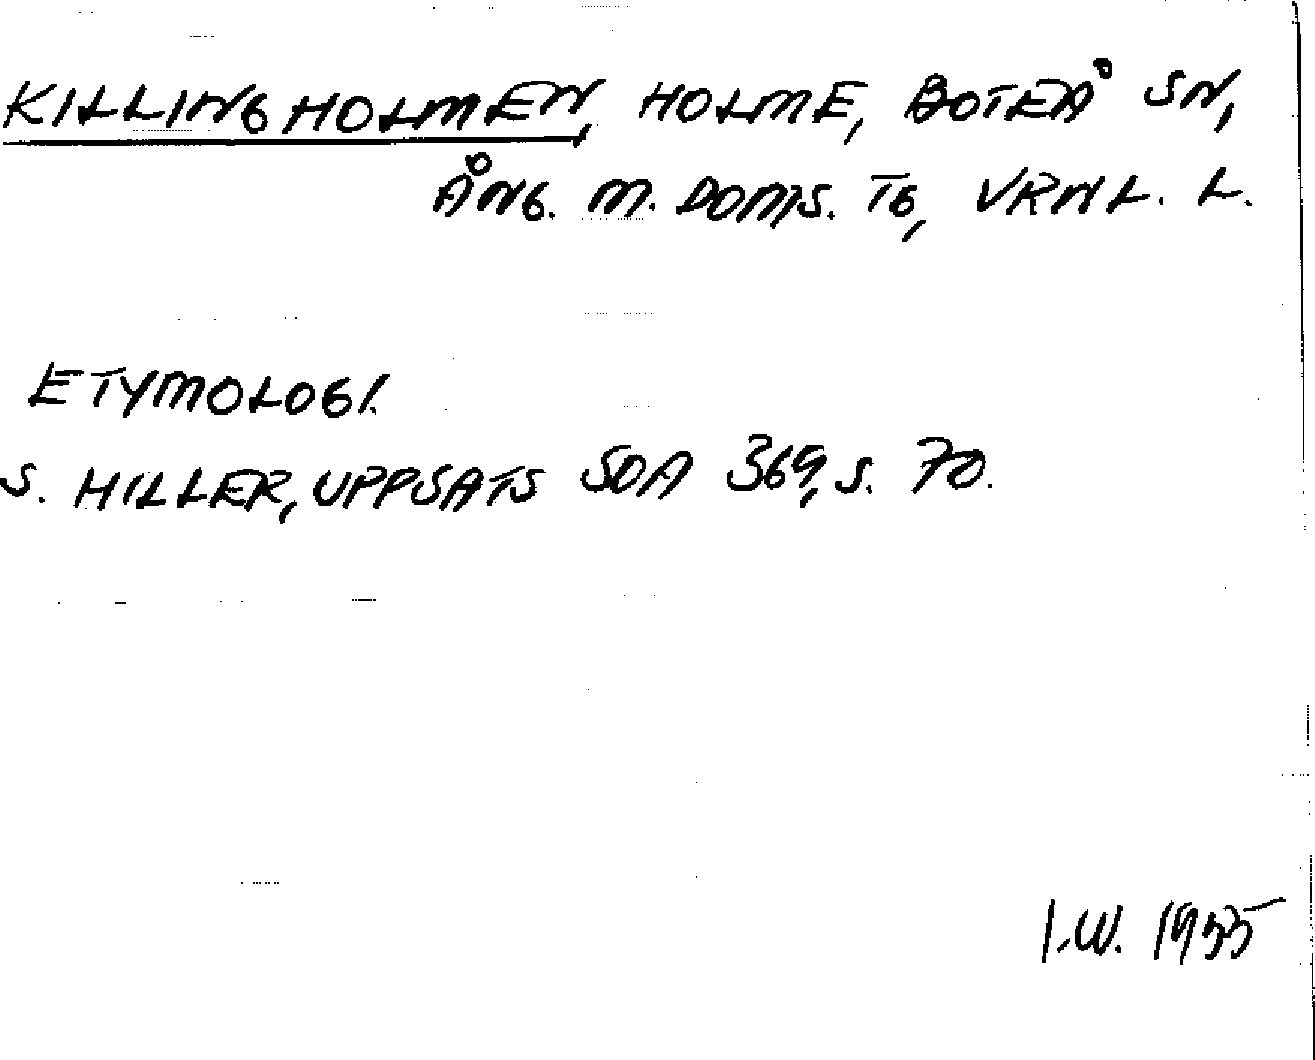 KILLINGHOLMEN, HOLME, BOTEÅ SN,
ÅNG. M. DOMS. TG, VRNL. L.
ETYMOLOGI.
S. HILLER, UPPSATS SOA 369, S. 70.
I.W. 1955